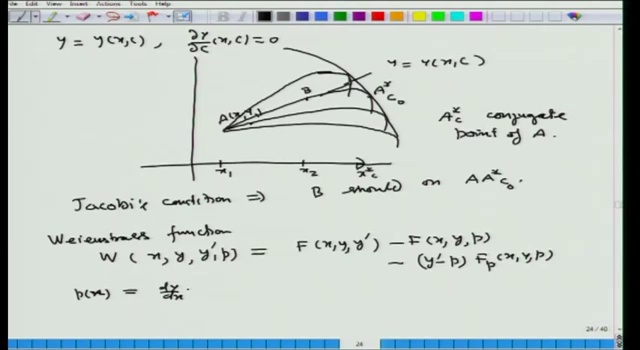 File Edit View Insert Actions Tools Help
y = y(x,c) , ∂y/∂c (x,c) = 0
y = y(x,c)
A*c₀
B
A(x₁,y₁)
A*c conjugate point of A.
x₁ x₂ x*c
Jacobi's condition ⇒ B should on AA*c₀.
Weierstrass function
W(x,y,y',p) = F(x,y,y') - F(x,y,p)
- (y'-p) Fp(x,y,p)
p(x) = dy/dx.
24
24/40